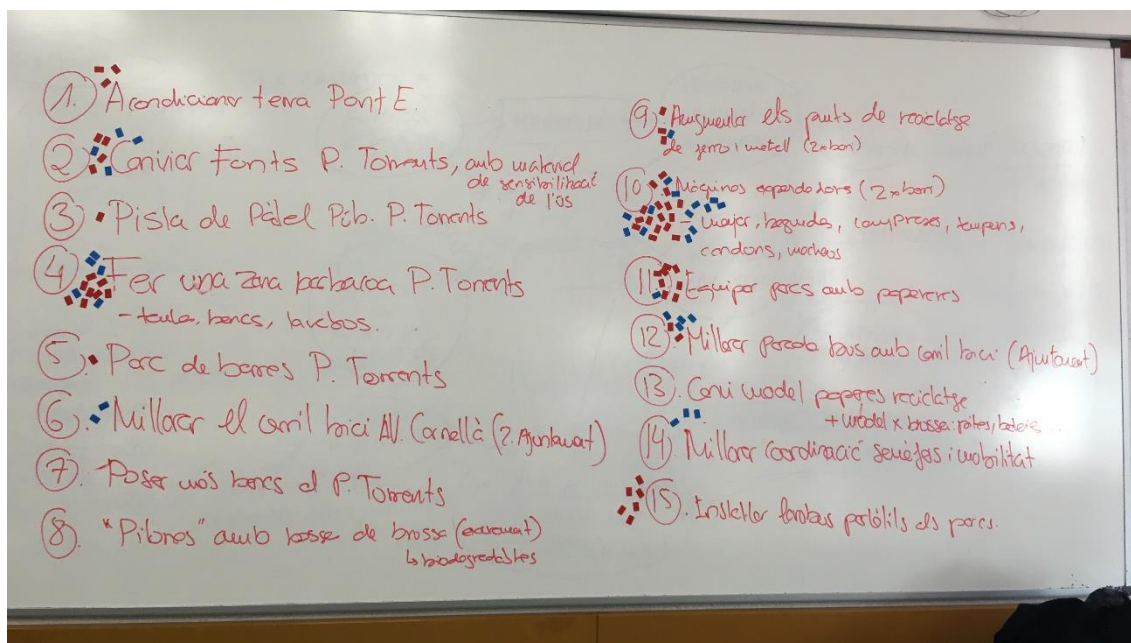 1. Acondicionar terra Pont E.
2. Canviar Fonts P. Torrents, amb material
de sensibilització
de l'ús
3. Pista de Pàdel Púb. P. Torrents
4. Fer una zona barbacoa P. Torrents
- taules, bancs, lavabos.
5. Parc de barres P. Torrents
6. Millorar el carril bici AV. Cornellà (? Ajuntament)
7. Poser més bancs al P. Torrents
8. "Pilones" amb bosse de brossa
↳ biodegradables
9. Augmentar els punts de reciclatge
de ferro i metall (2xbarri)
10. Màquines expenedores (2xbarri)
- menjar, begudes, compreses, tampons,
condons, motxes
11. Equipar parcs amb papereres
12. Millorar parada bus amb carril bici (Ajuntament)
13. Canvi model paperes reciclatge
+ model x brossa: piles, bateries...
14. Millorar coordinació semàfors i mobilitat
15. Instal·lar lavabos portàtils als parcs.